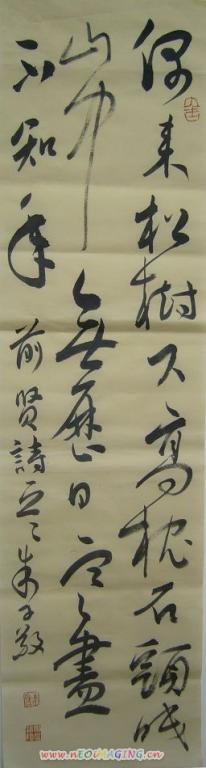 偶来松樹下高枕石頭眠
山中無歷日寒盡
不知年 前賢詩 朱子敬
www.nEOIMAGING.cn